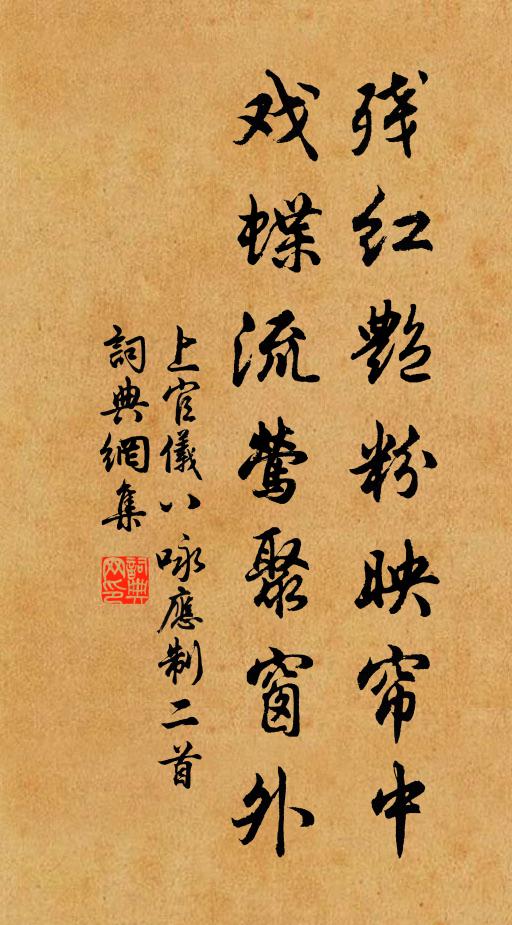 残红艳粉映帘中
戏蝶流莺聚窗外
上官儀八咏應制二首
詞典網集
詞典网印